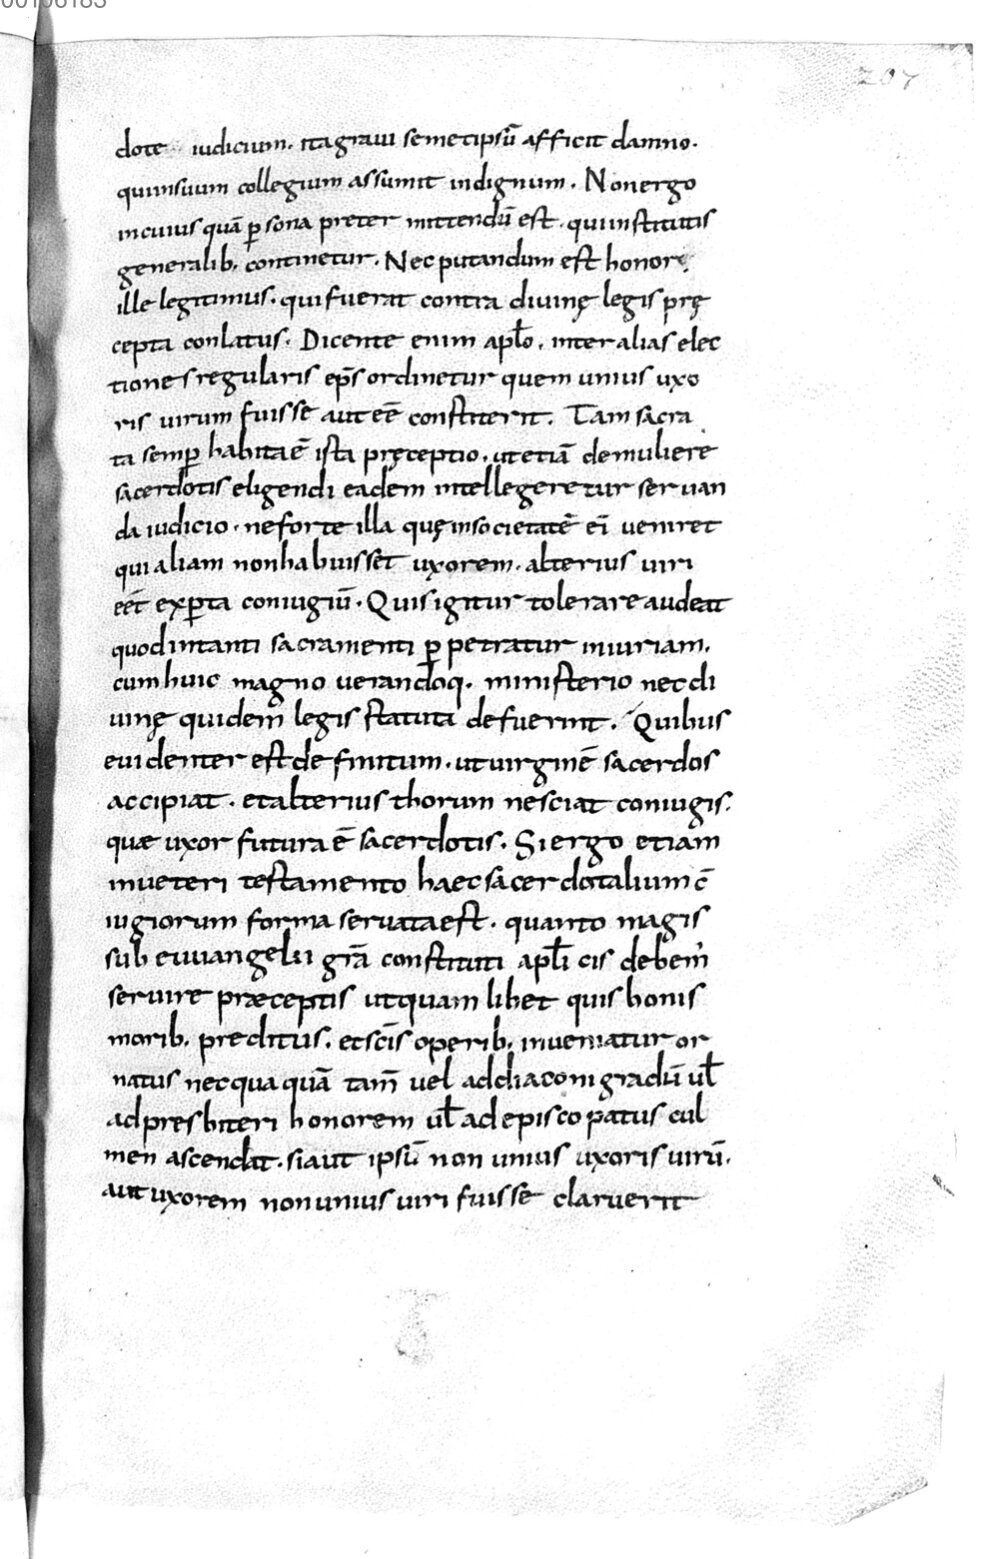 00106183
207
dote iudicium. itagraui semetipsū afficit damno.
quiinsuum collegium assumit indignum. Nonergo
incuius quā ꝑsona preter mittendū est. quiinstitutis
generalib. continetur. Necputandum est honor
ille legitimus. quifuerat contra diuinę legis prę
cepta conlatus. Dicente enim aplo̅. inter alias elec
tiones regularis ep̅s ordinetur quem unius uxo
ris uirum fuisse aut eē constiterit. Tam sacra
ta semꝑ habita ē ista pręceptio. ut etiā demuliere
sacerdotis eligendi eadem intellegeretur seruan
da iudicio. neforte illa quę insocietatē ei̅ ueniret
quialiam nonhabuisset uxorem. alterius uiri
eēt exꝑta coniugiū. Quisigitur tolerareaudeat
quodintanti sacramenti ꝑpetratur iniuriam.
cumhuic magno uerandoq. ministerio necdi
uinę quidem legis statuta defuerint. Quibus
euidenter est definitum. utuirginē sacerdos
accipiat. etalterius thorum nesciat coniugis.
quæ uxor futura ē sacerdotis. Siergo etiam
inueteri testamento haec sacerdotalium c̅
iugiorum forma seruataest. quanto magis
sub euuangelii grā constituti apl̅icis debem̅
seruire præceptis utquam libet quis bonis
morib. preditus. etsc̅is operib. inueniatur or
natus necquaquā tam̅ uel addiaconigradū ul̅
adpresbiteri honorem ul̅ adepiscopatus cul
men ascendat. siaut ipsū non unius uxoris uirū.
aut uxorem nonunius uiri fuisse claruerit